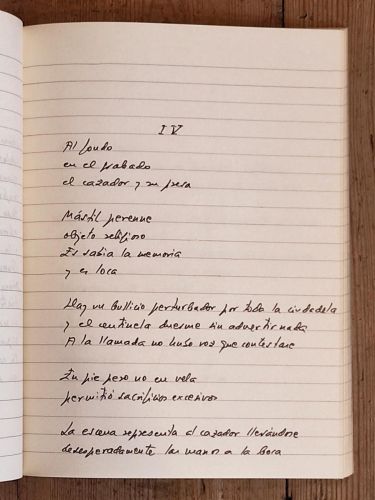 IV
Al fondo
en el grabado
el cazador y su presa
Mástil perenne
objeto religioso
Es sabia la memoria
y es loca
Hay un bullicio perturbador por toda la ciudadela
y el centinela duerme sin advertir nada
A la llamada no hubo voz que contestase
En pie pero no en vela
permitió sacrificios excesivos
La escena representa al cazador llevándose
desesperadamente las manos a la boca